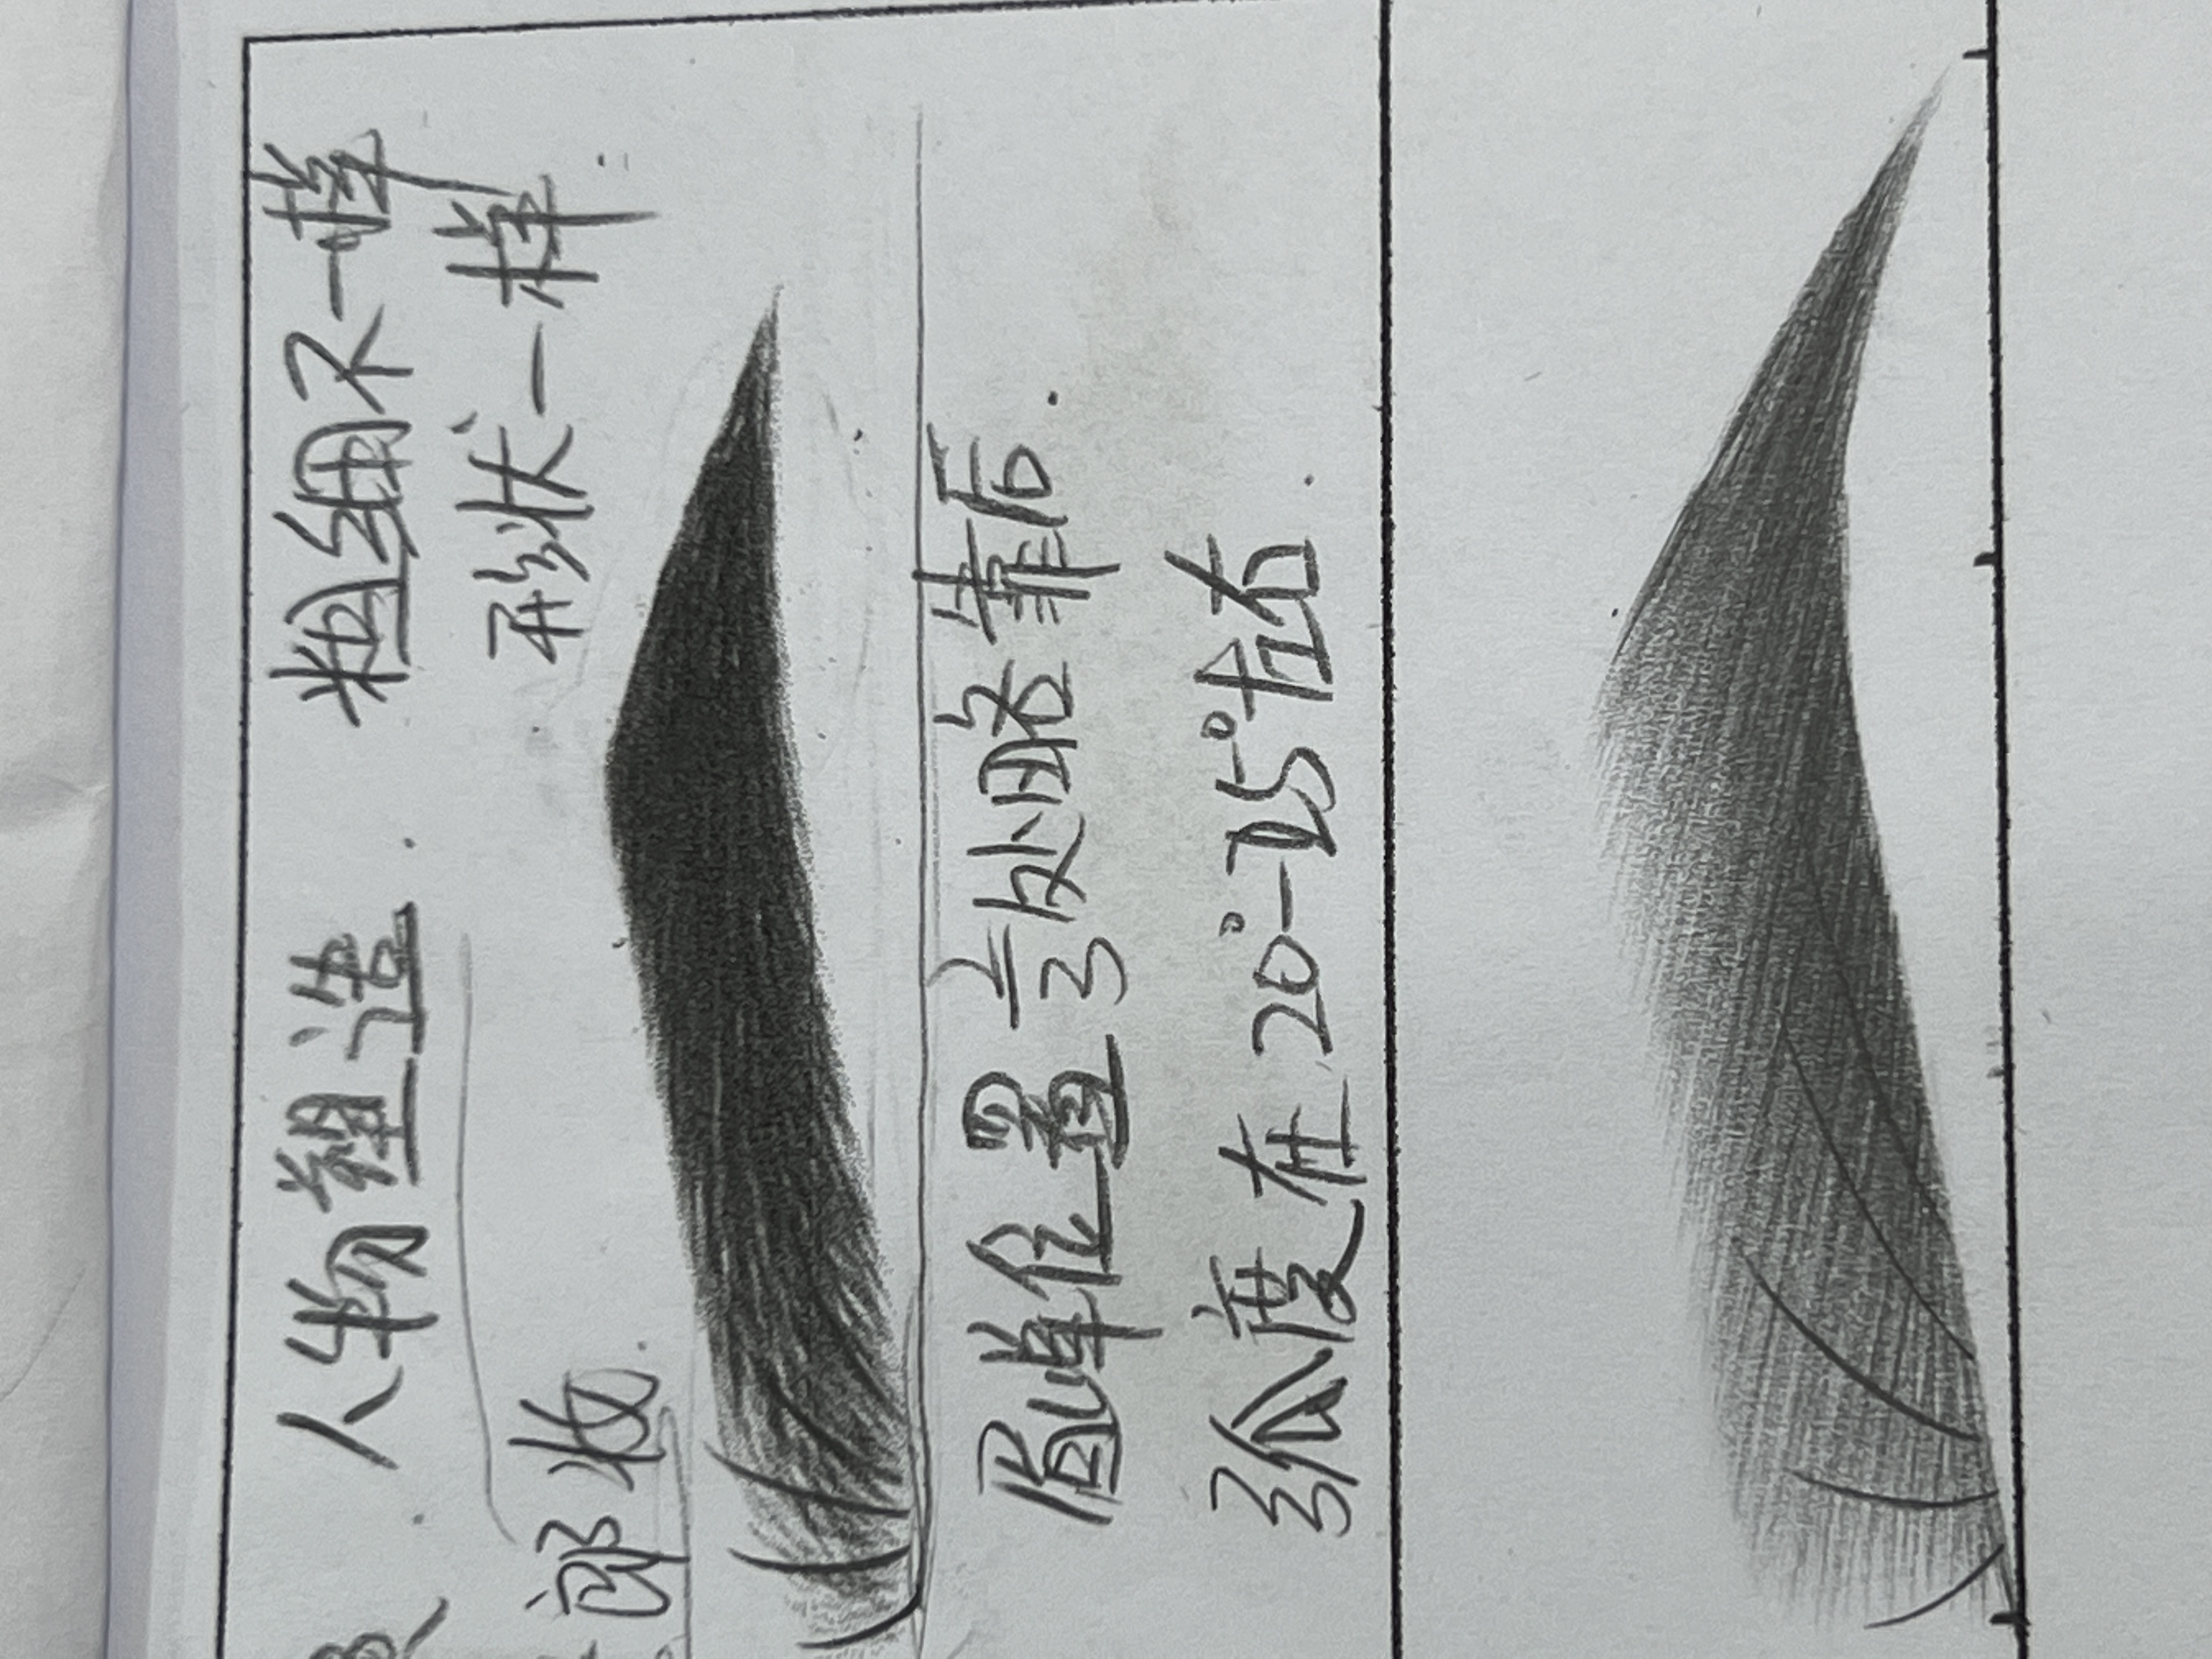 人物塑造. 粗细不一样
形状一样.
郎妆.
眉峰位置2/3处略靠后.
弧度在20°-25°左右.